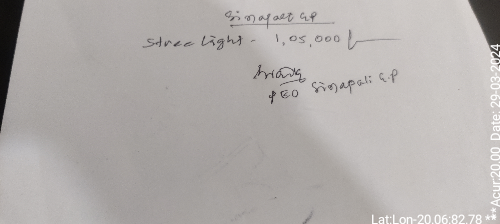 Sinapali GP
Street light - 1,05,000/-
PEO Sinapali GP
Lat:Lon-20.06:82.78
**Acur:20.00 Date: 29-03-2024